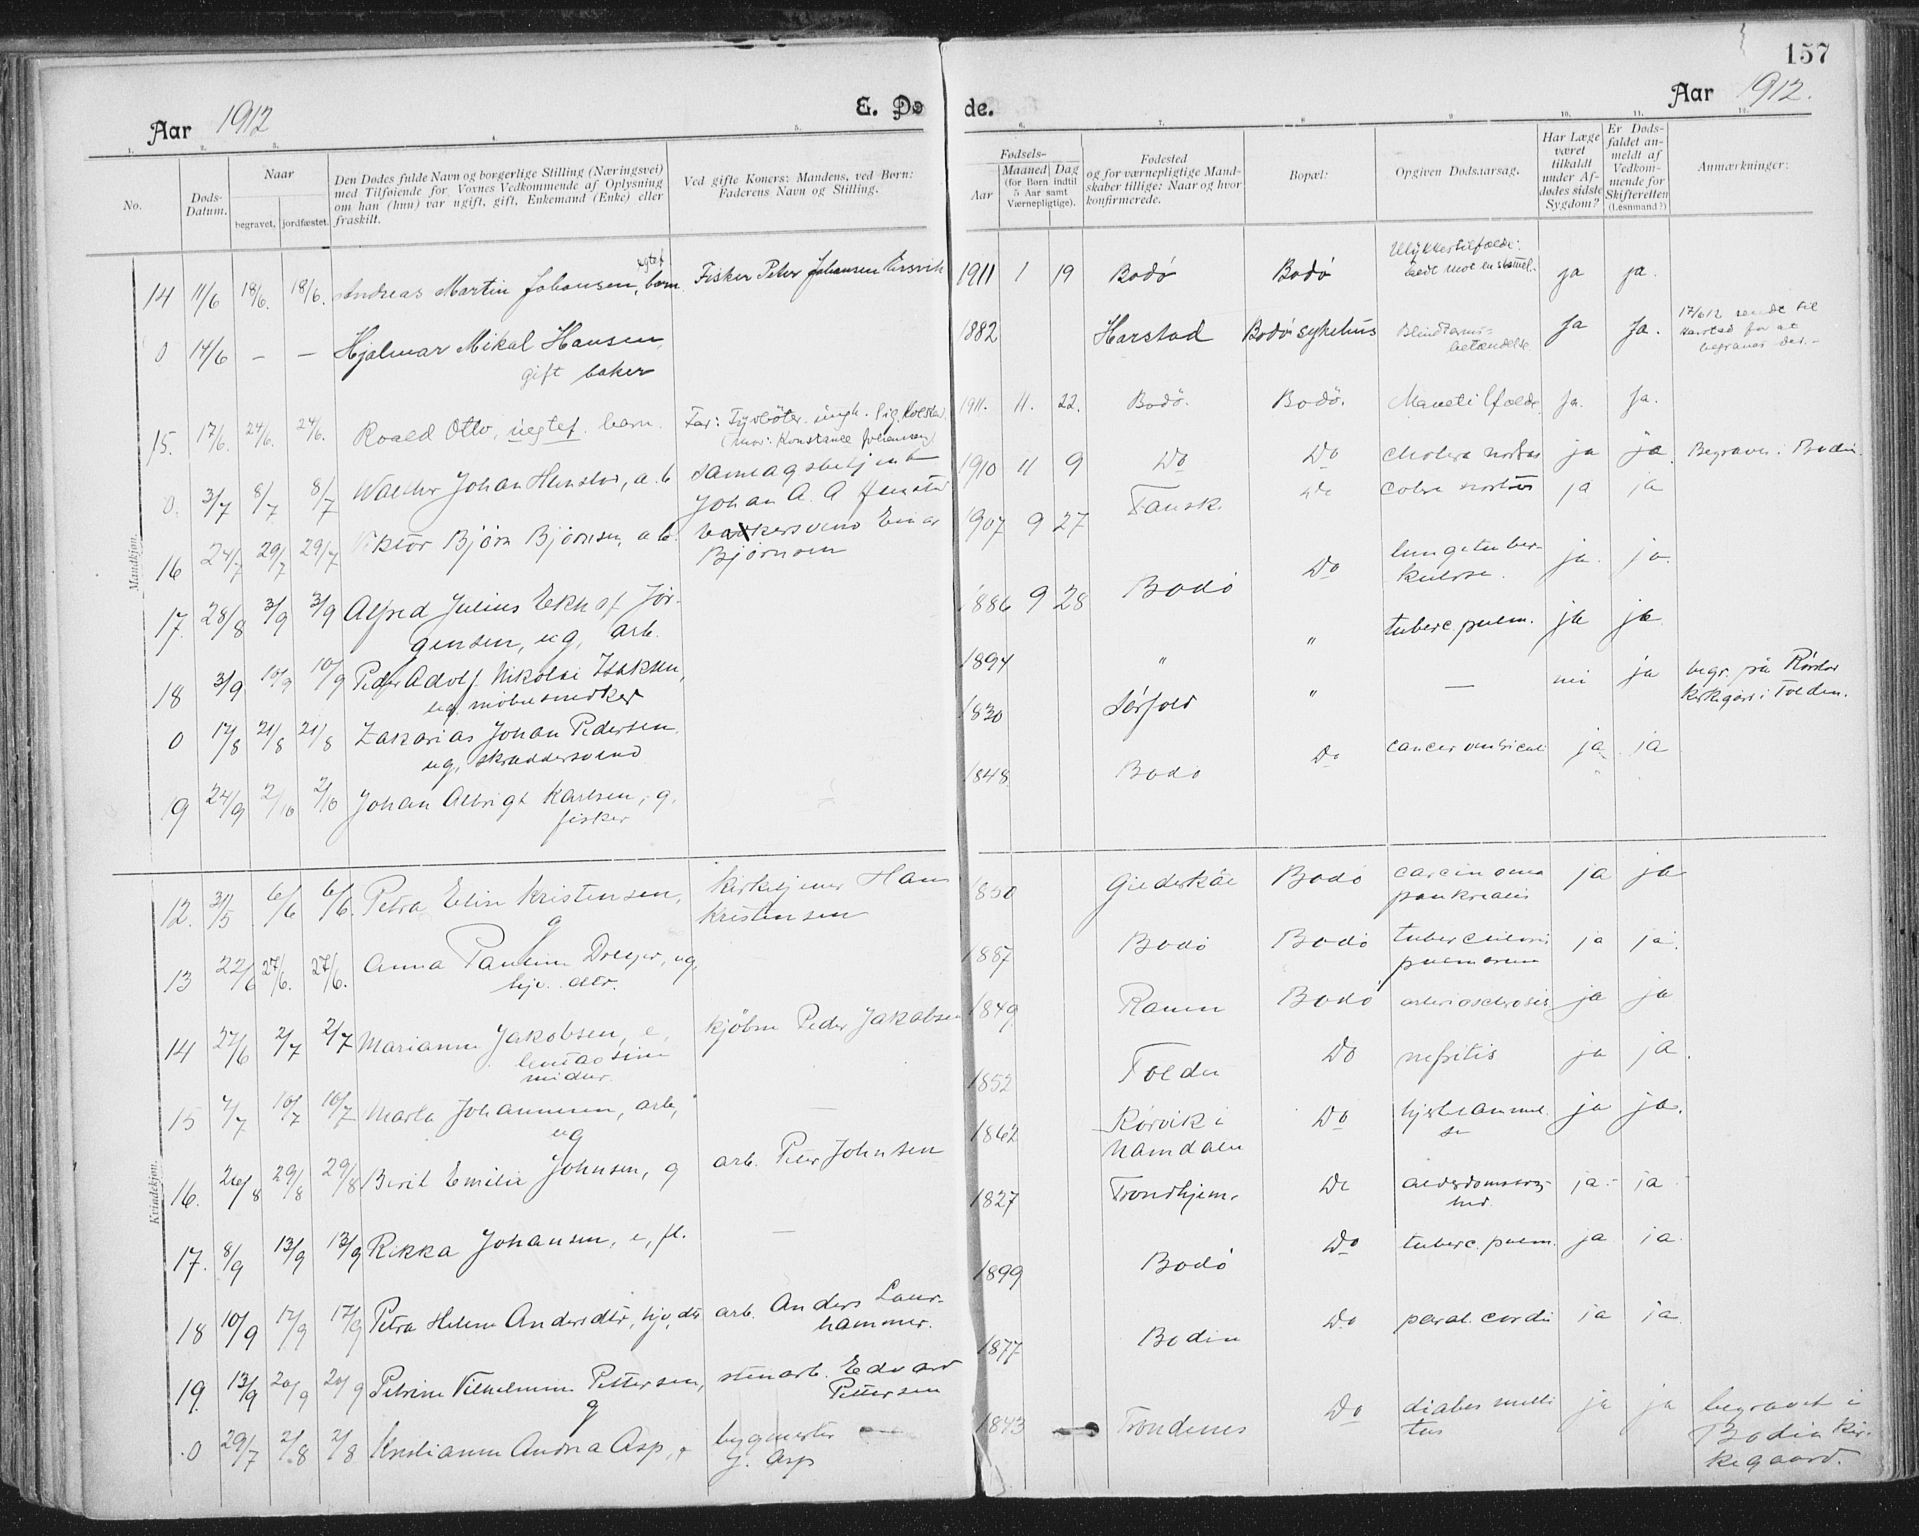 157
Aar 1912
E. Døde.
Aar 1912.
1. 2. 3. 4. 5. 6. 7. 8 9 10. 11. 12.
No.
Døds-Datum.
Naar
begravet. jordfæstet.
Den Dødes fulde Navn og borgerlige Stilling (Næringsvei)
med Tilføiende for Voxnes Vedkommende af Oplysning
om han (hun) var ugift, gift, Enkemand (Enke) eller
fraskilt.
Ved gifte Koners: Mandens, ved Børn:
Faderens Navn og Stilling.
Fødsels-
Aar
Maaned Dag
(for Børn indtil
5 Aar samt
Værnepligtige).
Fødested
og for værnepligtige Mand-
skaber tillige: Naar og hvor
konfirmerede.
Bopæl:
Opgiven Dødsaarsag.
Har Læge
været
tilkaldt
under Af-
dødes sidste
Sygdom?
Er Døds-
faldet an-
meldt af
Vedkom-
mende for
Skifteretten
(Lensmand?)
Anmærkninger:
Mandkjøn.
14 11/6 18/6. 18/6. Andreas Martin Johansen, egtef. barn. Fisker Peter Johansen 1911 1 19 Bodø Bodø Ulykkestilfælde: ja ja.
0 14/6 – – Hjalmar Mikal Hansen, 1882 Harstad Bodø sykehus Blindtarms- Ja Ja. 17/6 12 sendt til
gift baker betændelse. Harstad for at
begraves der.–
15. 17/6. 24/6. 24/6. Roald Otto, uegtef. barn. Far: 1911. 11. 22. Bodø. Bodø. Ja. Ja.
(Mor: Konstance Johansen)
0. 3/7 8/7 8/7 Johan a.b 1910 11 9 Do Do cholera nostras ja ja. Begravet i Bodin.
Johan A. A
16 24/7 29/7 29/7 Viktor Bjørn Bjørnsen, a.b. Einar 1907 9 27 Do ja ja
Bjørnsen
17. 28/8 3/9 3/9 Alfred Julius Ekhof Jør- 1886 9 28 Bodø Do lungetuber- ja. ja.
gensen, ug, arb. kulose.
18 3/9 10/9 10/9 Peder Adolf Nikolai Isaksen, 1894 " " tuberc. pulm. ja ja
ug. møbelsnekker
0 17/8 21/8 21/8 Zakarias Johan Pedersen, 1830 Sørfold " — nei ja begr. på Røsvik
ug, skræddersvend kirkegård i Folden.
19 24/9 2/10 2/10 Johan Albrigt Karlsen, g. 1848. Bodø Do cancer ventriculi ja ja
fisker
Kvindekjøn.
12. 31/5 6/6 6/6. Petra Elise Kristensen, kirketjener Hans 1850 Gildeskål Bodø carcinoma ja ja
g Kristensen pankreatis
13 22/6 27/6. 27/6. Anna Pauline Dreyer, ug, 1887 Bodø Bodø tuberculosis ja ja.
hjv. dtr. pulmonum
14 27/6 2/7 2/7 Marianne Jakobsen, e, kjøbm Peder Jakobsen 1849 Ranen Bodø arteriosclerosis ja ja
15 4/7 10/7 10/7 Marta Johannesen, arb, — 1852 Folden Do nefritis ja ja.
ug
16. 26/8 29/8 29/8 Beril Emilie Johnsen, g arb. Peter Johnsen 1862 Rørvik i Do ja ja.
Namdalen
17. 8/9 13/9 13/9 Rikka Johansen, e, fl. — 1827 Trondhjem. Do alderdomssvag- ja.- ja.-
hed.
18 10/9 17/9 17/9 Petra Helene Andersdtr, hjv, dtr arb. Anders Laur- 1899 Bodø Do tuberc. pulm. ja ja.
hammer.
19. 13/9 20/9 20/9 Petrine Vilhelmine Pettersen, stenarb. Edvard 1877 Bodin Do paral. cordis ja ja.
g Pettersen
0 29/7 2/8 2/8 Kristianne Andrea Asp, bygmester 1843 Trondenes Do diabes melli ja ja begravet i
J. Asp tus Bodin kir-
kegaard.